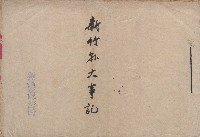 新竹縣大事記